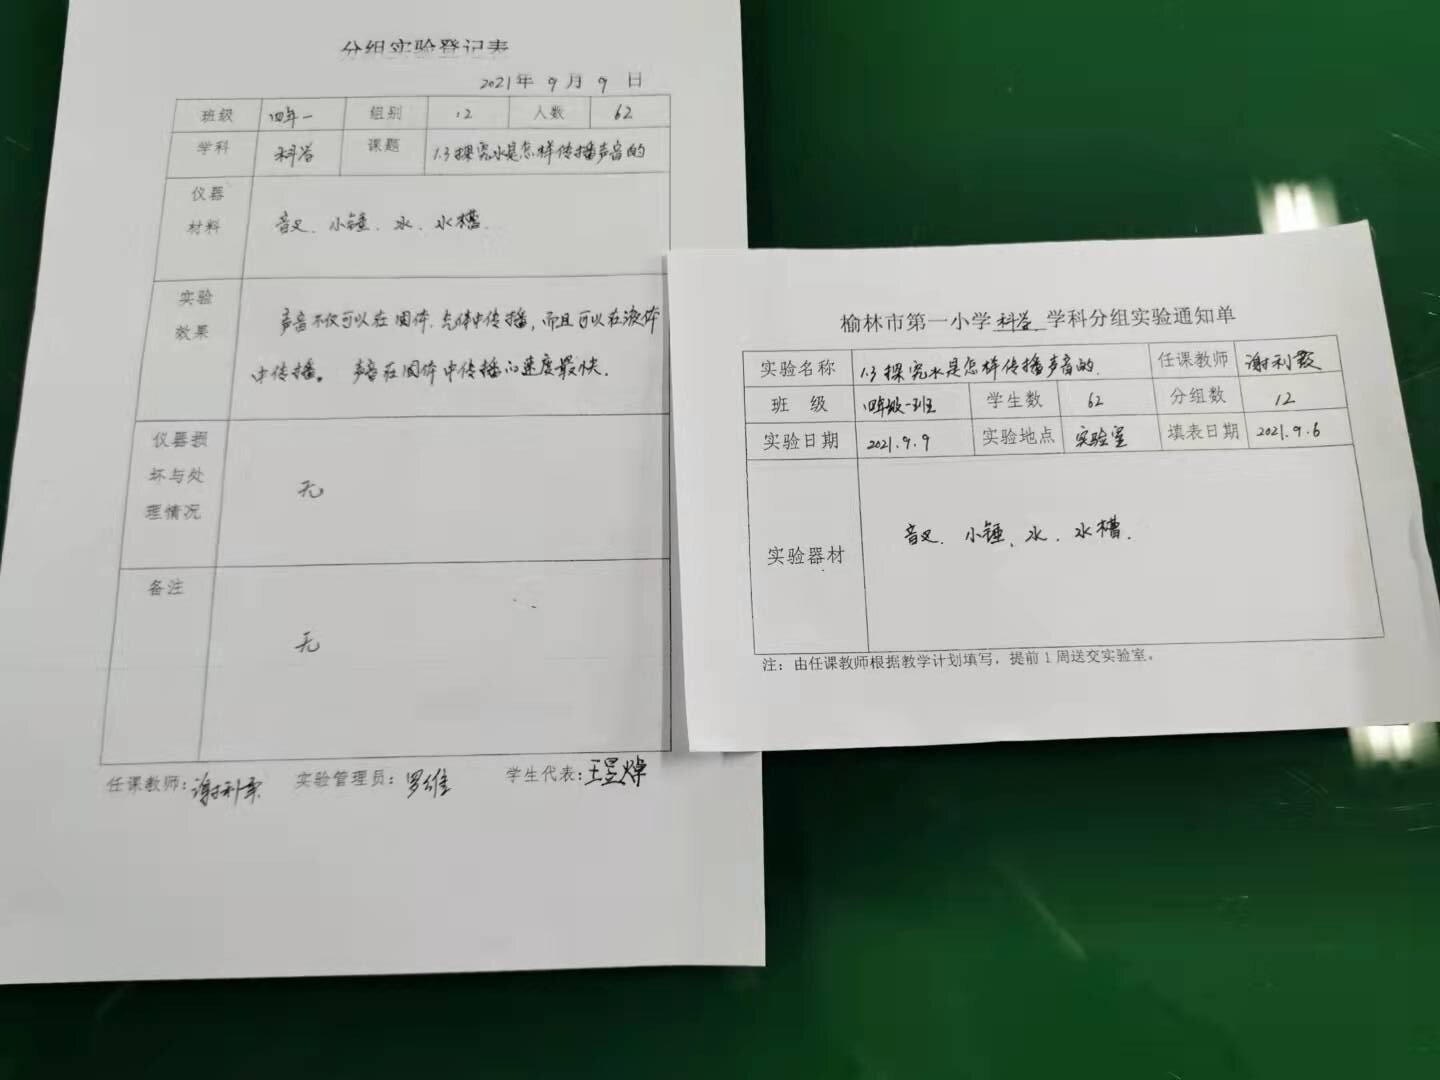 分组实验登记表
2021年 9 月 9 日
班级 四年一 组别 12 人数 62
学科 科学 课题 1.3探究水是怎样传播声音的
仪器
材料
音叉、小锤、水、水槽.
实验
效果
声音不仅可以在固体、气体中传播,而且可以在液体
中传播。 声音在固体中传播的速度最快.
仪器损
坏与处
理情况
无
备注
无
任课教师: 实验管理员:罗维 学生代表:王昱焯
榆林市第一小学 科学 学科分组实验通知单
实验名称 1.3探究水是怎样传播声音的. 任课教师 谢利
班 级 四年级一班 学生数 62 分组数 12
实验日期 2021.9.9 实验地点 实验室 填表日期 2021.9.6
实验器材
音叉、小锤、水、水槽.
注:由任课教师根据教学计划填写,提前1周送交实验室。